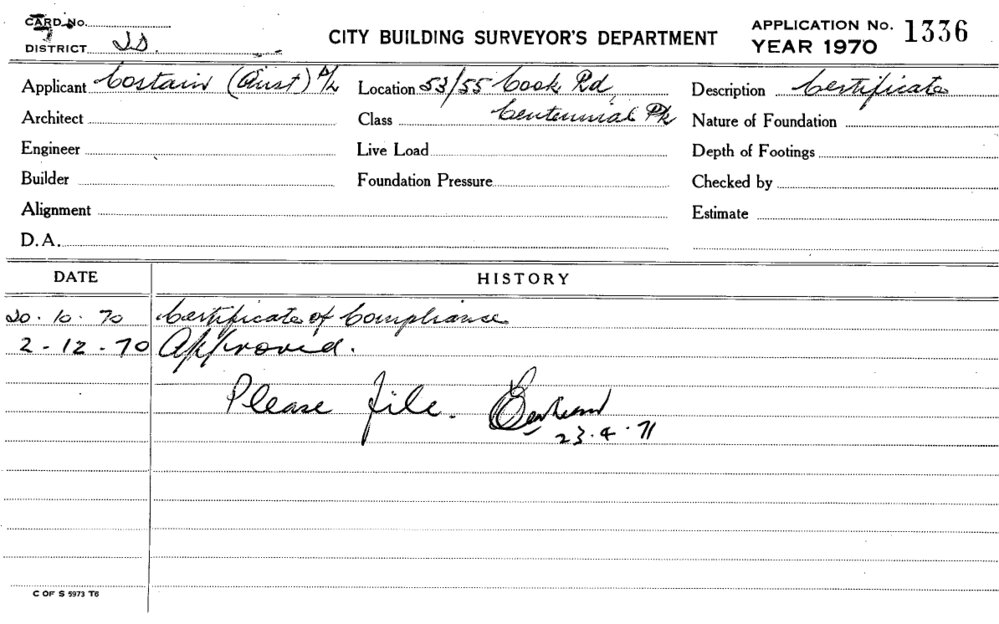 CARD No.
DISTRICT
CITY BUILDING SURVEYOR'S DEPARTMENT
APPLICATION No. 1336
YEAR 1970
Applicant Costain (Aust) P/L
Location 53/55 Cook Rd,
Description Certificate
Architect
Class Centennial Pk
Nature of Foundation
Engineer
Live Load
Depth of Footings
Builder
Foundation Pressure
Checked by
Alignment
Estimate
D.A.
DATE
HISTORY
20.10.70 Certificate of Compliance
2-12-70 Approved.
Please file.
23.4.71
C OF S 5973 T6